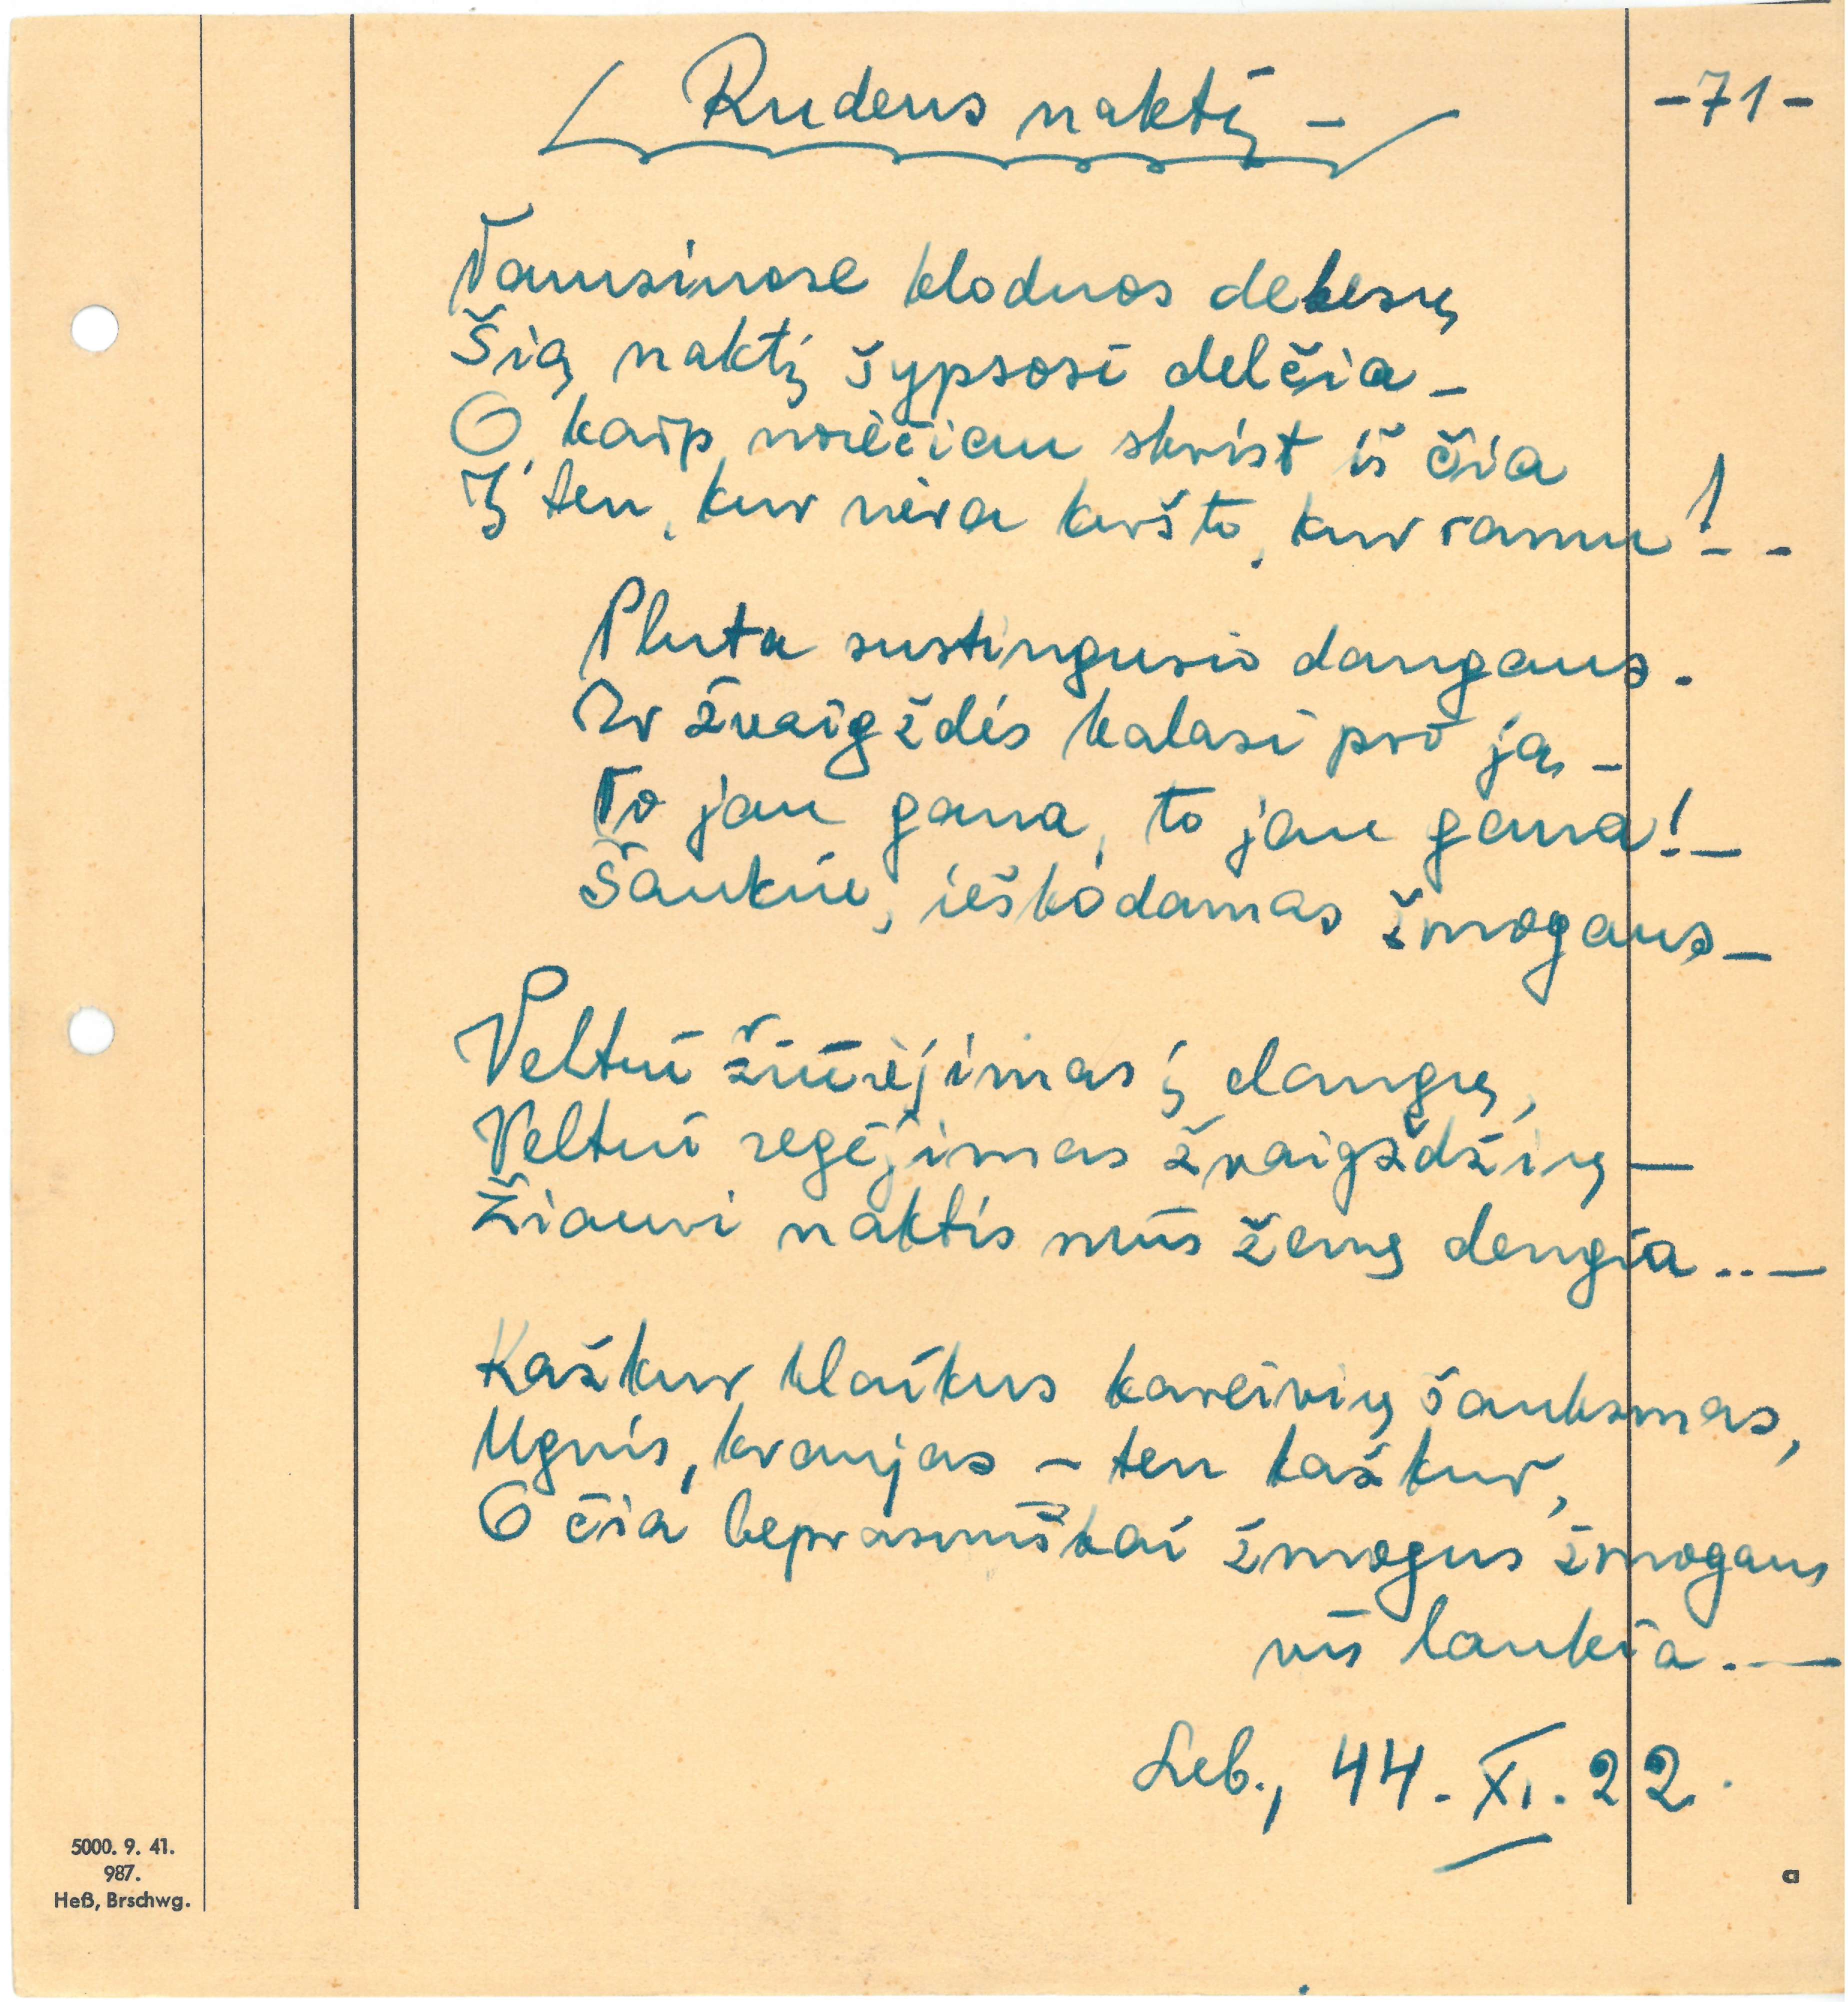 Rudens naktį –
–71–
Tamsiuose kloduos debesų
Šią naktį šypsosi delčia –
O, kaip norėčiau skrist iš čia
Į ten, kur nėra keršto, kur ramu! – –
Pluta sustingusio dangaus.
Ir žvaigždės kalasi pro ją –
To jau gana, to jau gana! –
Šaukiu, ieškodamas žmogaus –
Veltui žiūrėjimas į dangų,
Veltui regėjimas žvaigždžių —
Žiauri naktis mūs žemę dengia .. —
Kažkur klaikus kareivių šauksmas,
Ugnis, kraujas – ten kažkur,
O čia beprasmiškai žmogus žmogaus
vis laukia. —
Leb., 44. XI. 22.
5000. 9. 41.
987.
Heß, Brschwg.
a